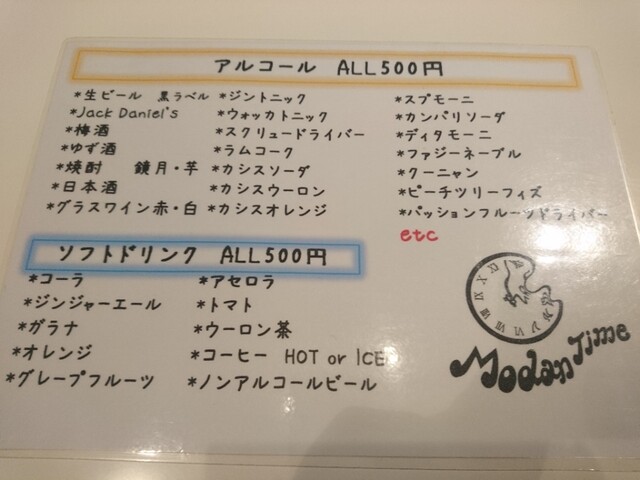 アルコール ALL500円
*生ビール 黒ラベル
*Jack Daniel's
*梅酒
*ゆず酒
*焼酎 鏡月・芋
*日本酒
*グラスワイン赤・白
*ジントニック
*ウォッカトニック
*スクリュードライバー
*ラムコーク
*カシスソーダ
*カシスウーロン
*カシスオレンジ
*スプモーニ
*カンパリソーダ
*ディタモーニ
*ファジーネーブル
*クーニャン
*ピーチツリーフィズ
*パッションフルーツドライバー
etc
ソフトドリンク ALL500円
*コーラ
*ジンジャーエール
*ガラナ
*オレンジ
*グレープフルーツ
*アセロラ
*トマト
*ウーロン茶
*コーヒー HOT or ICE
*ノンアルコールビール
Modan Time